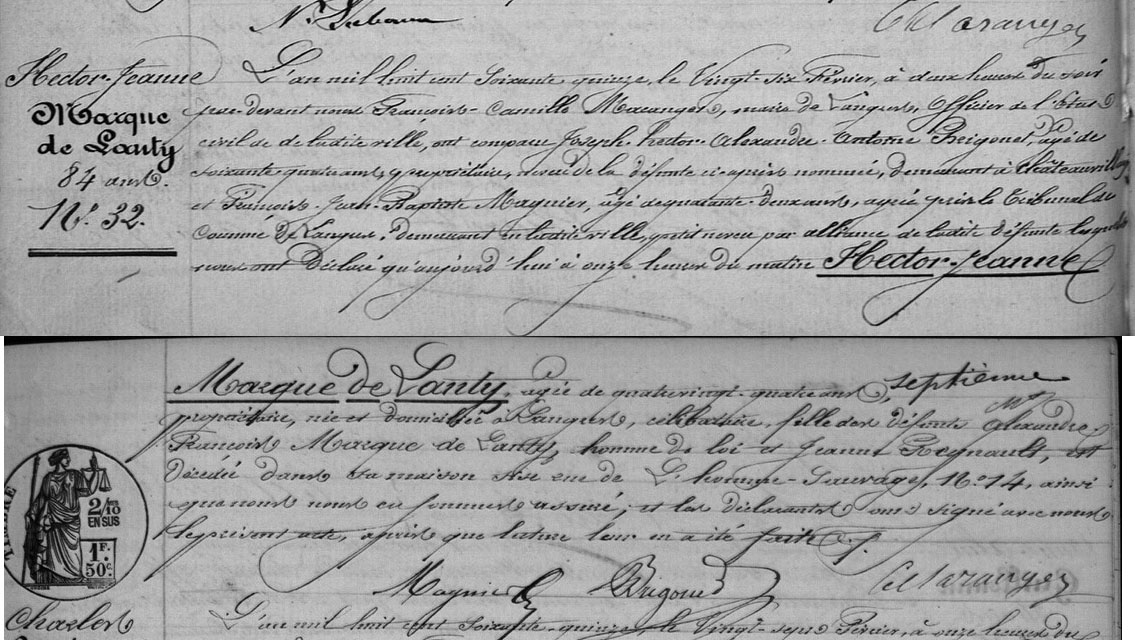 CMaranget
Hector-Jeanne
Marque
de Lanty
84 ans.
N.º 32.
L'an mil huit cent soixante quinze, le Vingt-six Février, à deux heures du soir
par devant nous François-Camille Maranget, maire de Langres, Officier de l'Etat
civil de ladite ville, ont comparu Joseph-hector-Alexandre-Antoine Brigonet, âgé de
soixante quatre ans, propriétaire, neveu de la défunte ci-après nommée, demeurant à Châteauvillain
et François-Jean-Baptiste Magnier, âgé de quarante-deux ans, agréé près le Tribunal de
Commé de Langres, demeurant en ladite ville, petit neveu par alliance de ladite défunte lesquels
nous ont Déclaré qu'aujourd'hui à onze heures du matin Hector-Jeanne
Marque de Lanty, âgée de quatrevingt-quatre ans, septième
propriétaire, née et domiciliée à Langres, célibataire, fille des défunts Alexandre
François Marque de Lanty, homme de loi et Jeanne Regnault, est
décédée dans sa maison sise rue de L'homme-Sauvage, N.º 14, ainsi
que nous nous en sommes assuré; et les déclarants ont signé avec nous
le présent acte, après que lecture leur en a été faite.
2/10
EN SUS
1 F.
50 c.
Magnier Brigonet CMaranget
Charles
L'an mil huit cent soixante-quinze, le Vingt-sept Février, à onze heures du